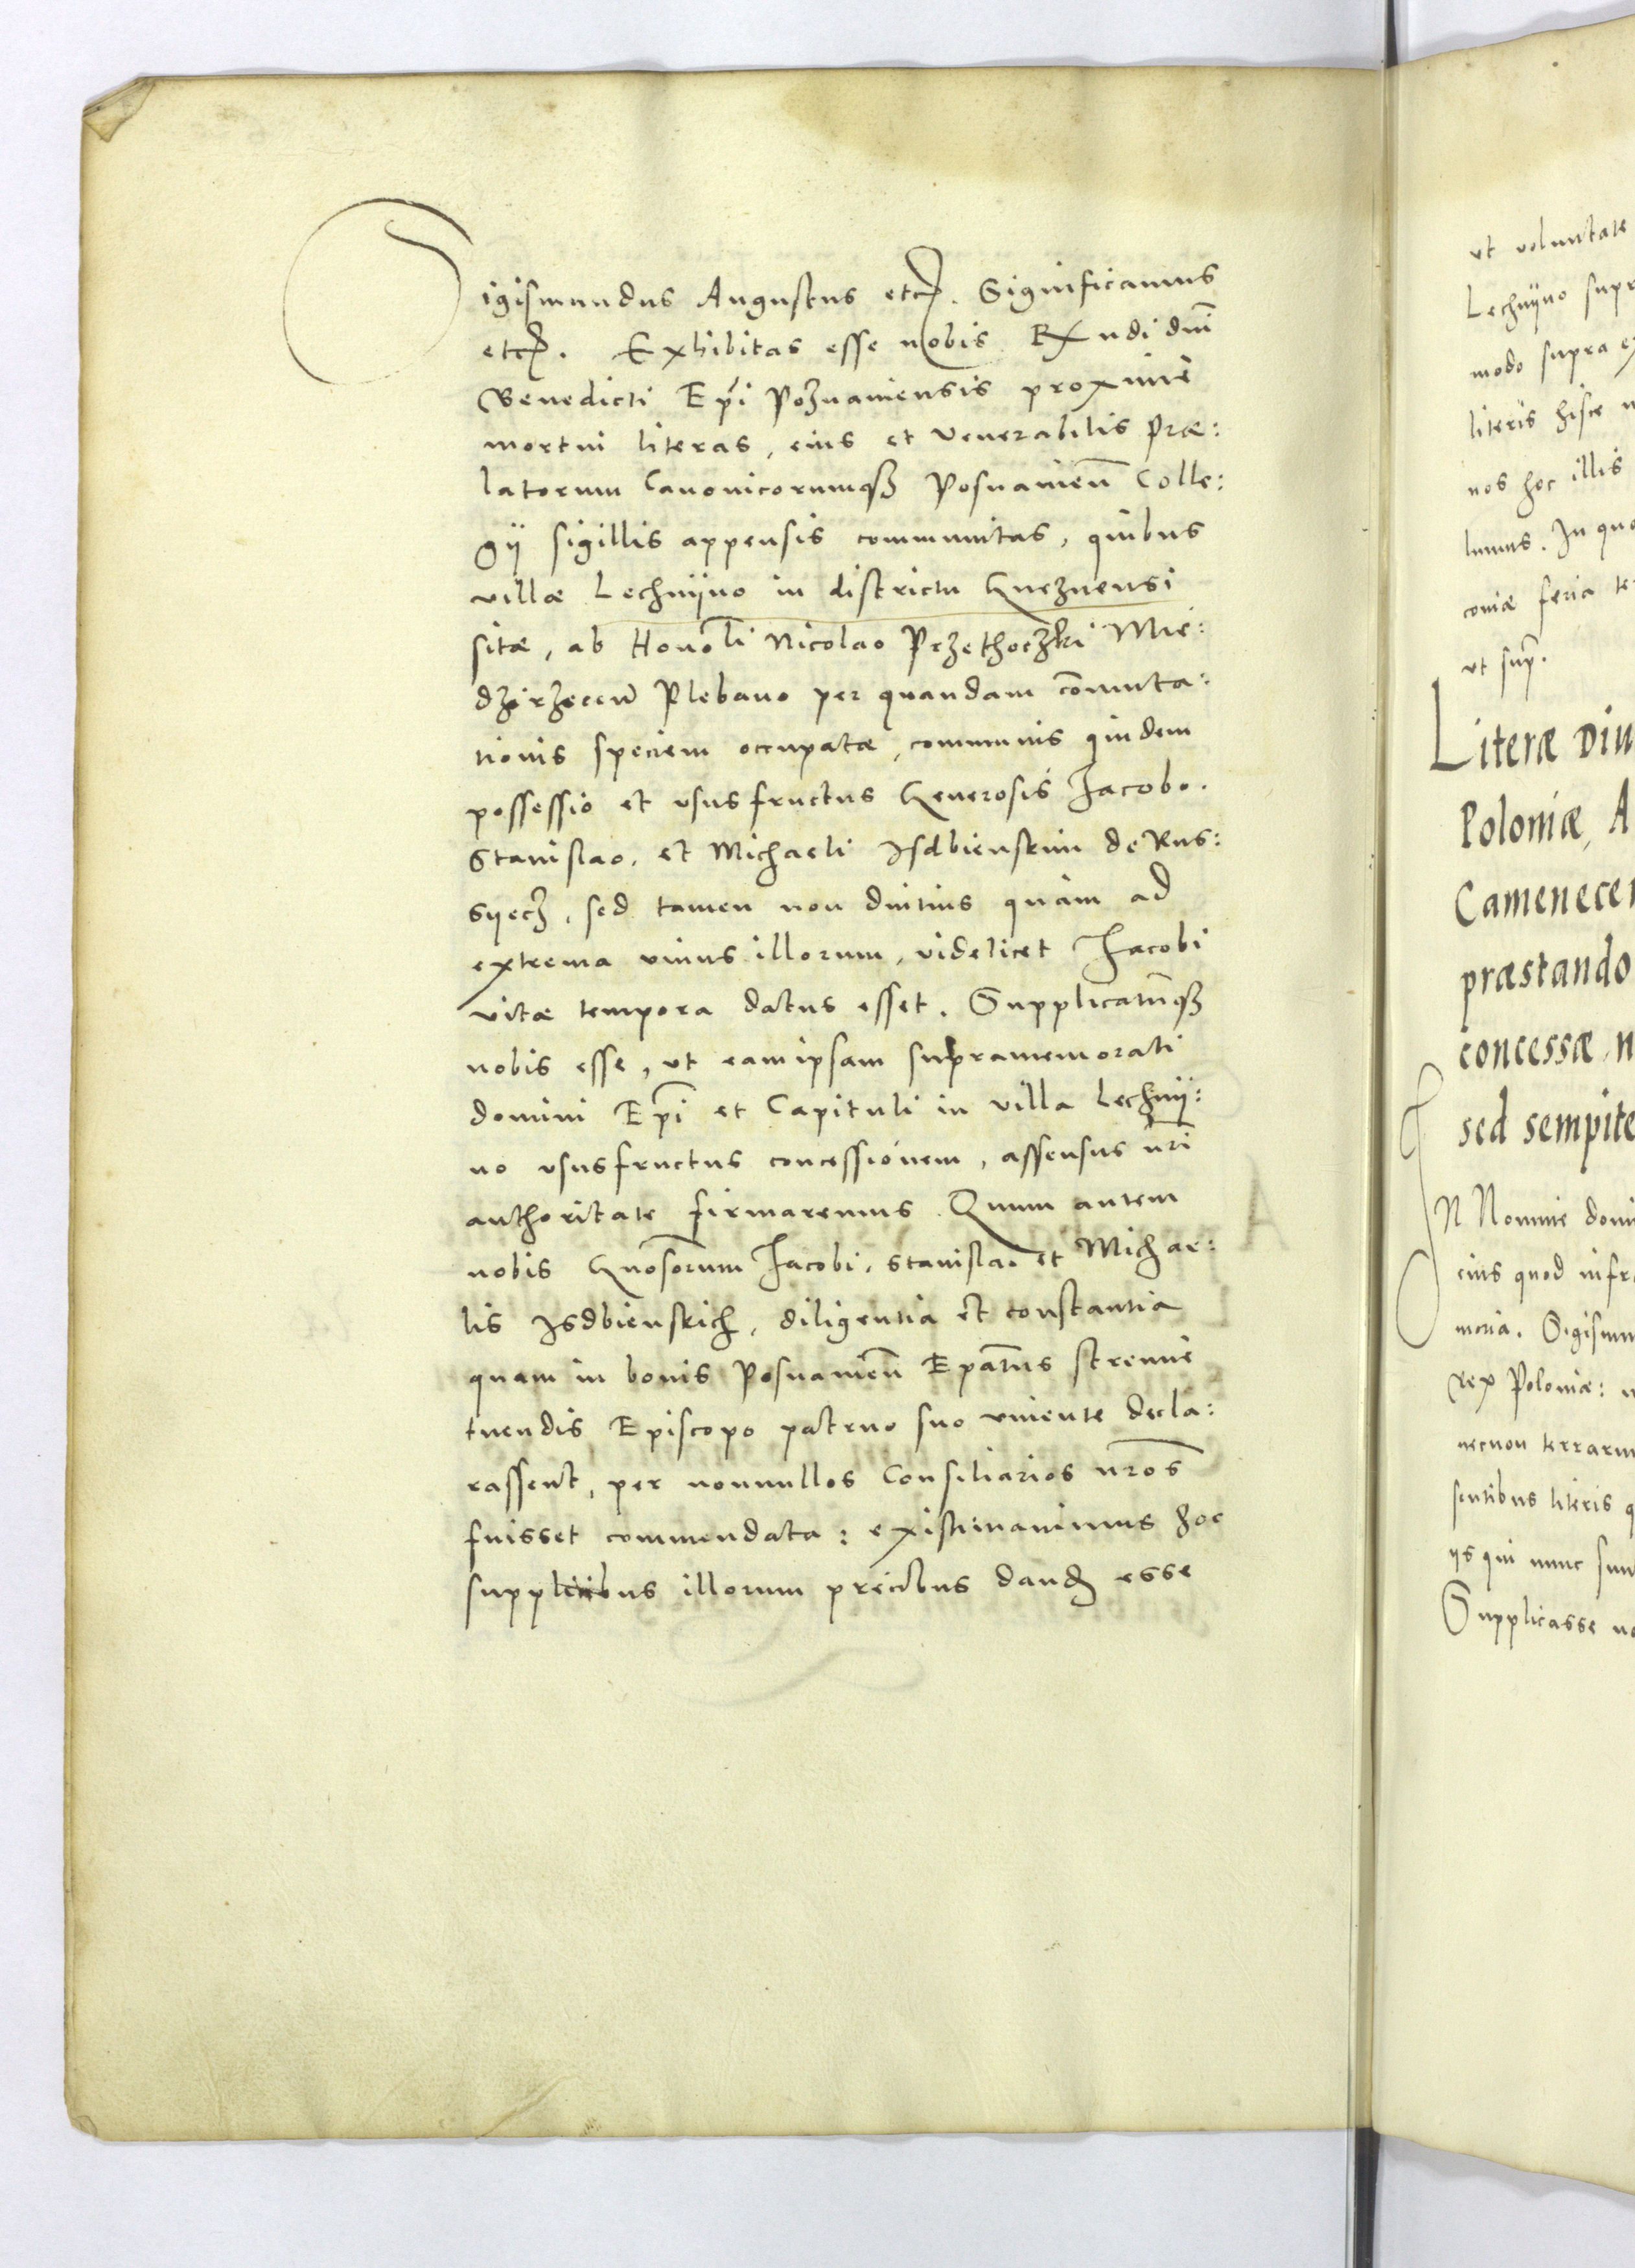 Sigismundus Augustus etc. Significamus
etc. Exhibitas esse nobis Rndi dni
Benedicti Epi Poznaniensis proxime
mortui literas, eius et venerabilis Præ:
latorum Canonicorumq3 Posnanien Colle:
gij sigillis appensis communitas, quibus
villæ Lechnijno in districtu Gneznensi
sitæ, ab Honoli Nicolao Przethoczki Mie:
dzirzecen Plebano per quandam commuta:
tionis speciem occupatæ, communis quidem
possessio et ususfructus Generosis Jacobo.
Stanislao. et Michaeli Isdbienskim de Rus:
syecz, sed tamen non diutius quam ad
extrema unius illorum, videlicet Jacobi
vitæ tempora datus esset. Supplicatumq3
nobis esse, ut eam ipsam supramemorati
domini Epi et Capituli in villa Lechnij:
no ususfructus concessionem, assensus nri
authoritate firmaremus. Quum autem
nobis Gnosorum Jacobi. Stanislai et Michae:
lis Isdbienskich, diligentia et constantia
quam in bonis Posnanien Epatus strenue
tuendis Episcopo patruo suo vivente decla:
rassent, per nonnullos Consiliarios nros
fuisset commendata: existimavimus hoc
supplicibus illorum precibus dand esse
ut voluntate
Lechnijno supr
modo supra ex
literis hisce
nos hoc illis
lumus. In quo
coviæ feria te
ut sup.
Literæ
Poloniæ, A
Camenecen
præstando
concessæ, n
sed sempite
IN Nomine domi
eius quod infra
moria. Sigismu
rex Poloniæ:
necnon terrarum
sentibus literis q
ijs qui nunc sun
Supplicasse no